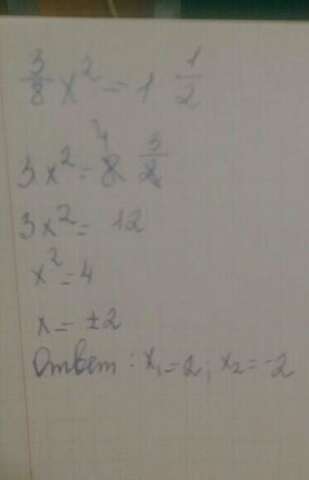 3/8 x² = 1 1/2
3x² = 8 4 3/2
3x² = 12
x² = 4
x = ±2
Ответ: x₁ = 2; x₂ = -2